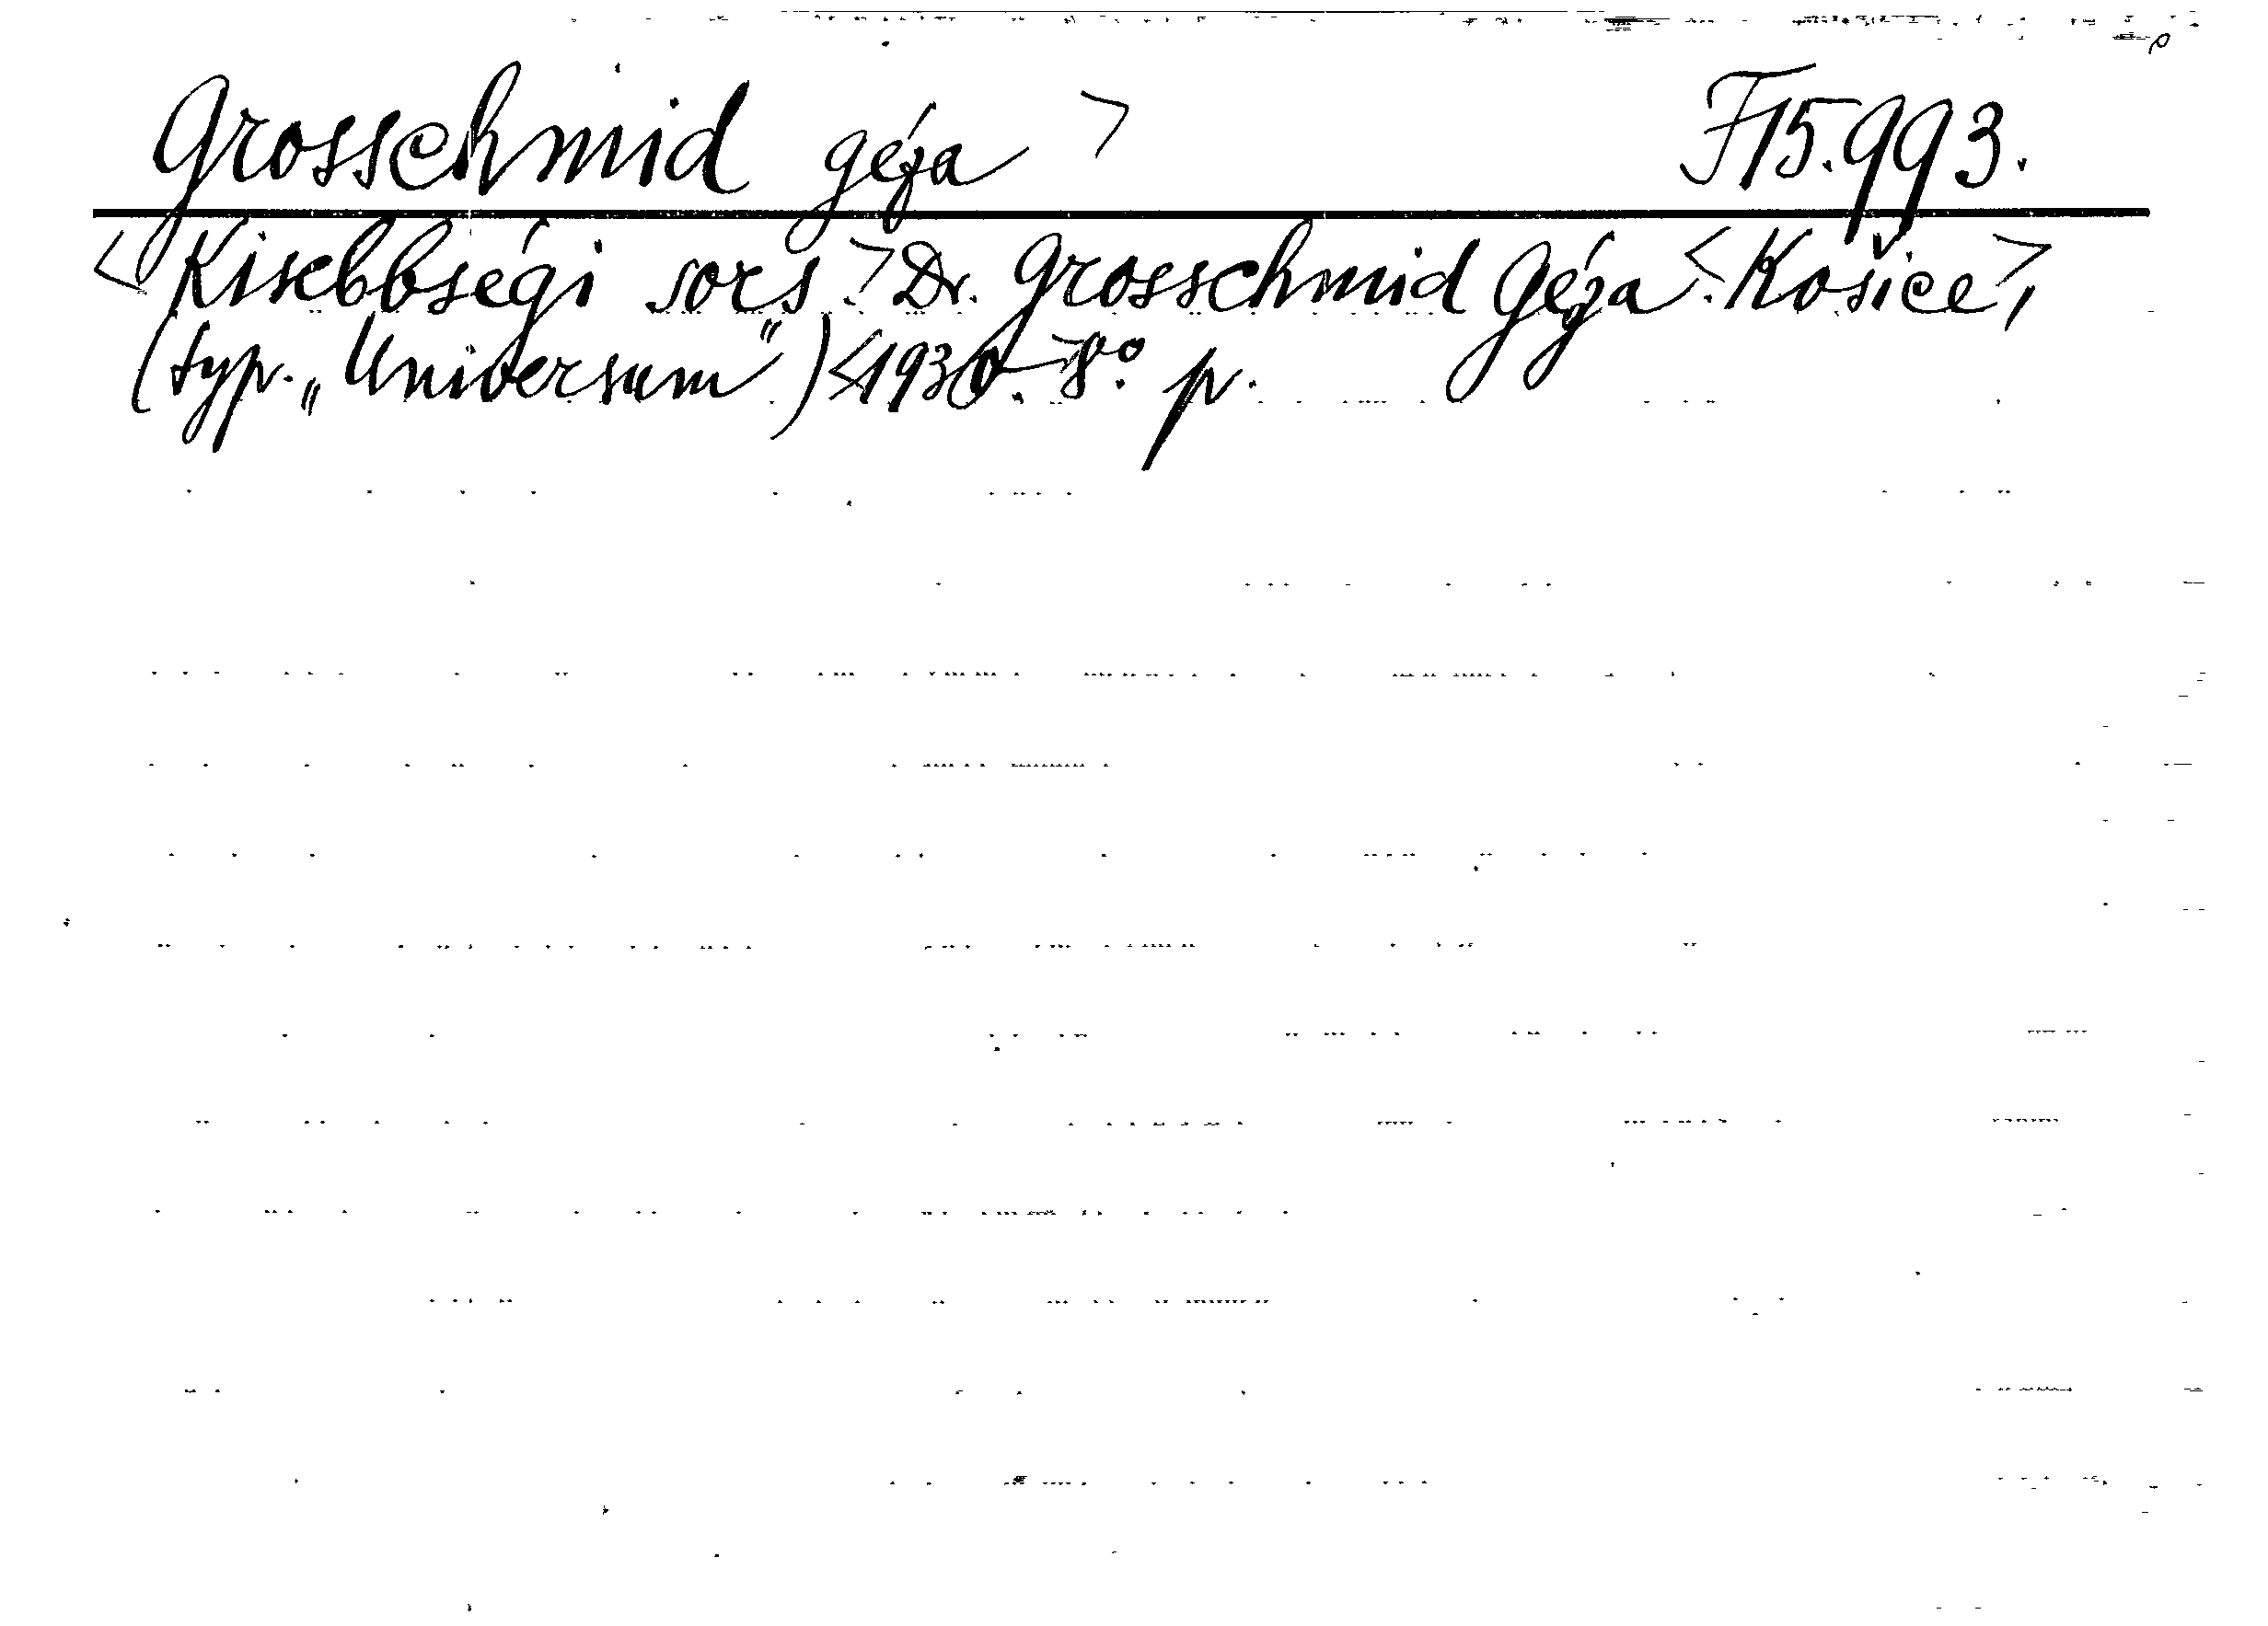 Grosschmid Géza > F15.993.
<Kisebbségi sors.> Dr. Grosschmid Géza <. Košice>,
(typ. „Universum") <1930.> 8° p.